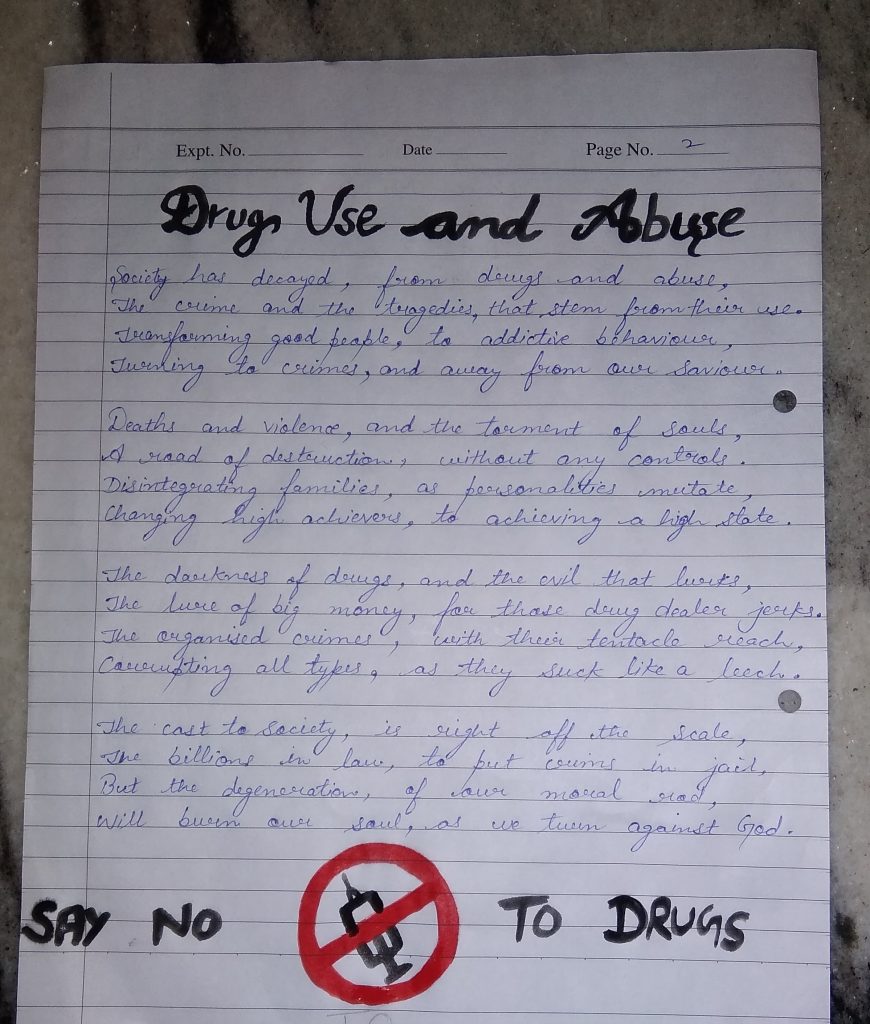 Expt. No. Date Page No. 2
Drug Use and Abuse
Society has decayed, from drugs and abuse,
The crime and the tragedies, that stem from their use.
Transforming good people, to addictive behaviour,
Turning to crimes, and away from our saviour.
Deaths and violence, and the torment of souls,
A road of destruction, without any controls.
Disintegrating families, as personalities mutate,
Changing high achievers, to achieving a high state.
The darkness of drugs, and the evil that lurks,
The lure of big money, for those drug dealer jerks.
The organised crimes, with their tentacle reach,
Corrupting all types, as they suck like a leech.
The cost to society, is right off the scale,
The billions in law, to put crims in jail,
But the degeneration, of our moral rod,
Will burn our soul, as we turn against God.
SAY NO TO DRUGS